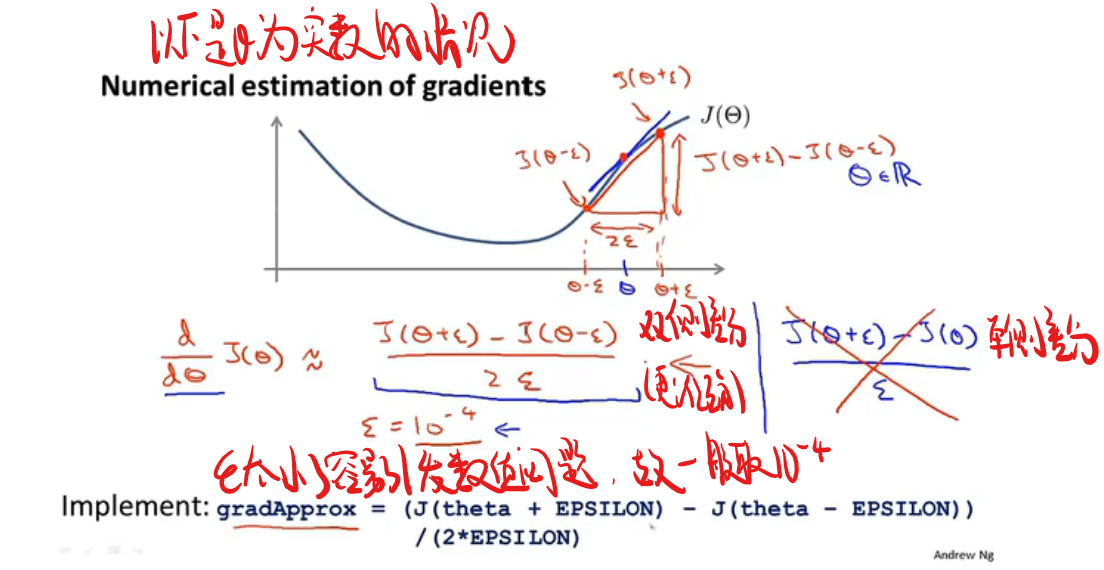 以下是θ为实数的情况
Numerical estimation of gradients
J(θ+ε)
J(Θ)
J(θ-ε)
J(θ+ε)-J(θ-ε)
θ∈ℝ
2ε
θ-ε θ θ+ε
d/dθ J(θ) ≈ (J(θ+ε) - J(θ-ε)) / 2ε 双侧差分 (更准确) ← | (J(θ+ε) - J(θ)) / ε 单侧差分
ε = 10⁻⁴ ←
ε太小容易引发数值问题，故一般取10⁻⁴
Implement: gradApprox = (J(theta + EPSILON) - J(theta - EPSILON))
/(2*EPSILON)
Andrew Ng